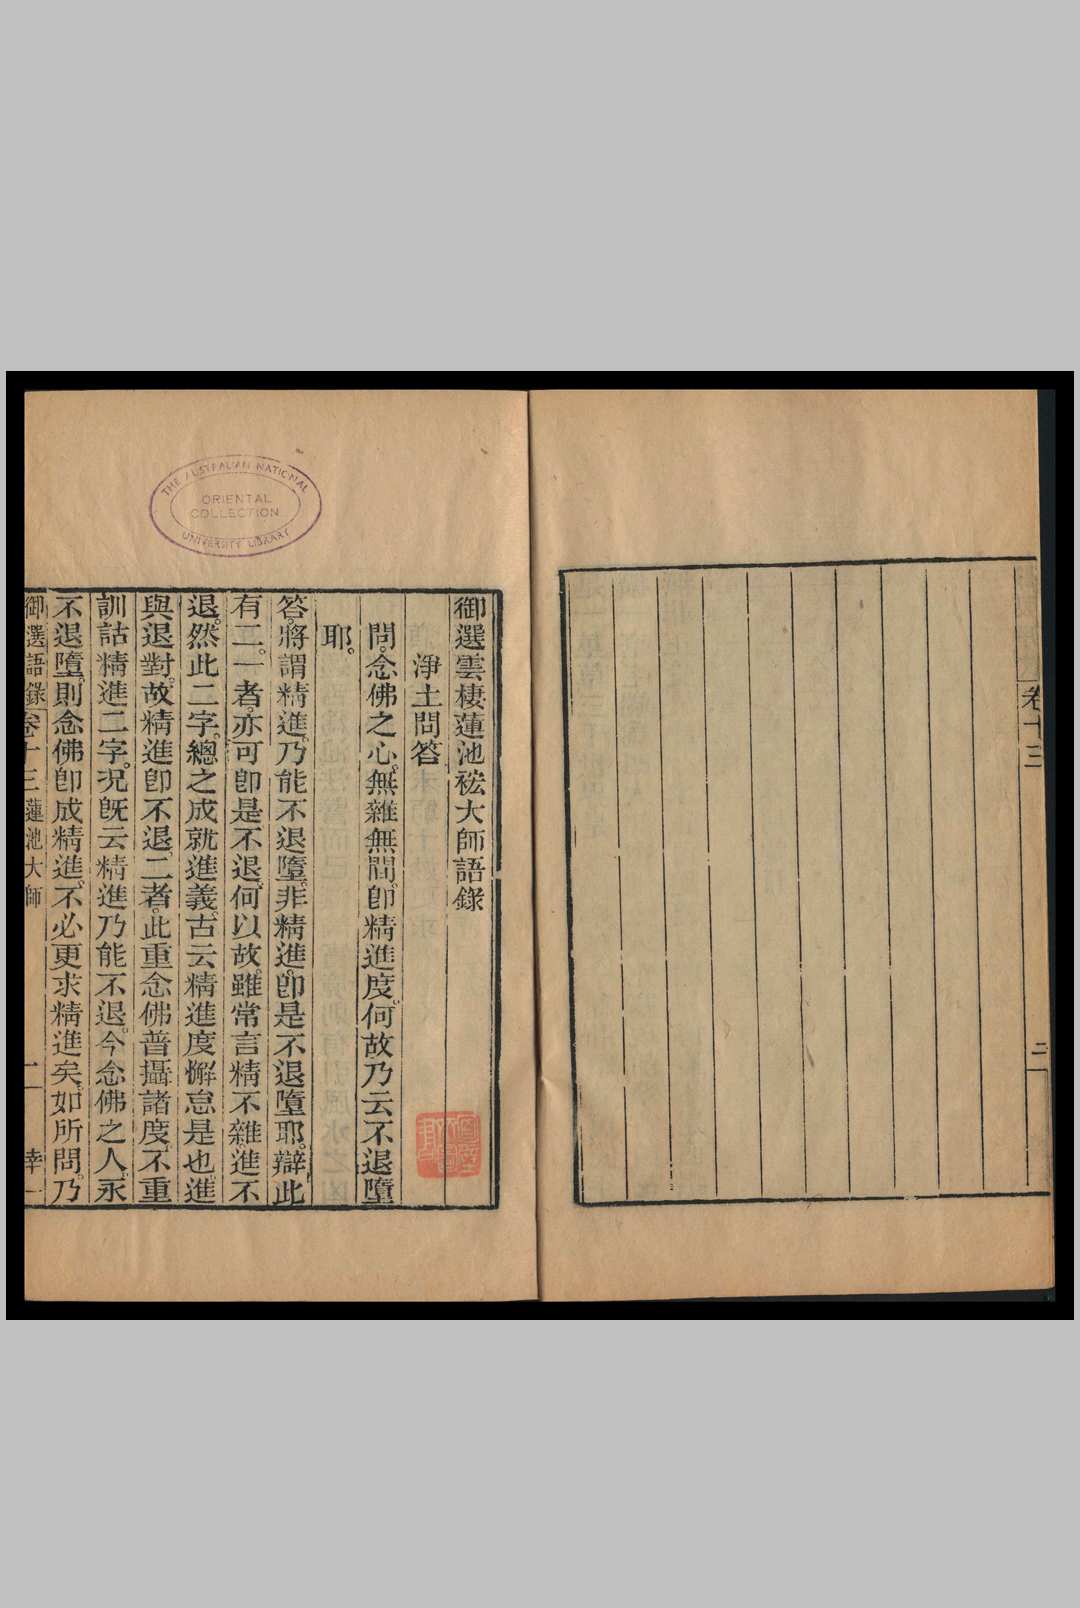 卷十三
二
御選雲棲蓮池袾大師語錄
淨土問答
問。念佛之心。無雜無間。卽精進度。何故乃云不退墮
耶。
答。將謂精進。乃能不退墮。非精進。卽是不退墮耶。辯此
有二。一者。亦可卽是不退。何以故。雖常言精不雜。進不
退。然此二字。總之成就進義。古云精進度懈怠是也。進
與退對。故精進卽不退。二者。此重念佛普攝諸度。不重
訓詁精進二字。況旣云精進乃能不退。今念佛之人。永
不退墮。則念佛卽成精進。不必更求精進矣。如所問。乃
御選語錄 卷十三 蓮池大師 一
THE AUSTRALIAN NATIONAL
ORIENTAL
COLLECTION
UNIVERSITY LIBRARY